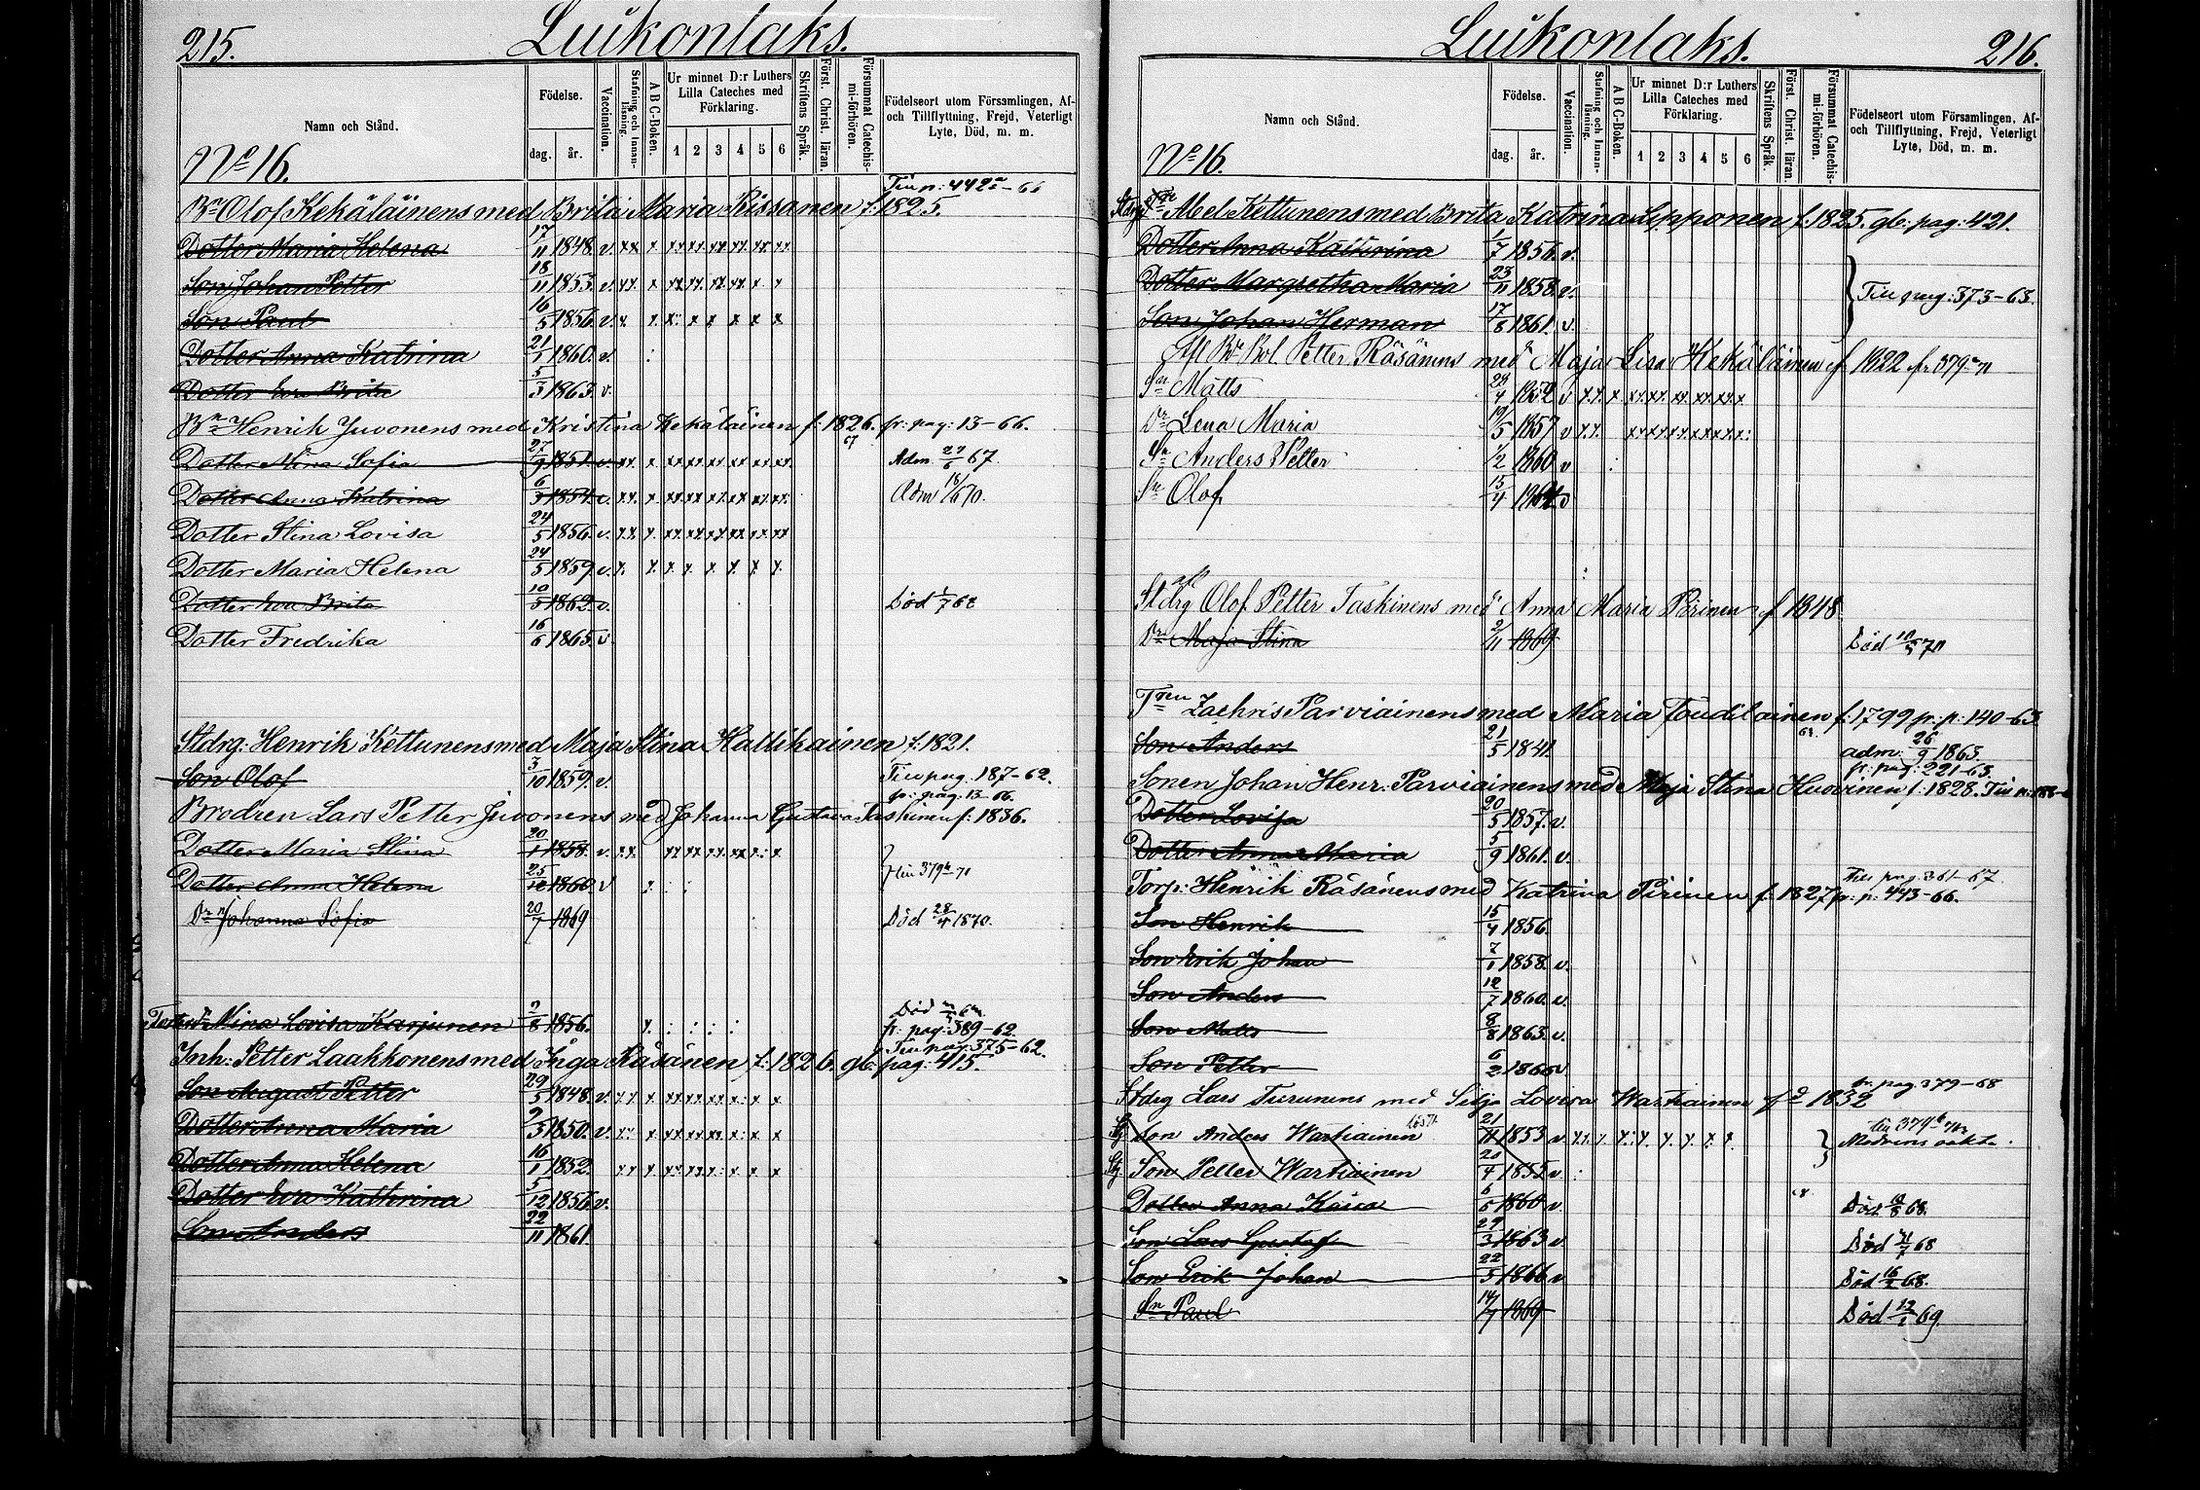 215. Luikonlaks.
Namn och Stånd.
Födelse.
dag. år.
Vaccination.
Stafning och Innan-läsning.
A B C-Boken.
Ur minnet D:r Luthers Lilla Cateches med Förklaring.
1 2 3 4 5 6
Skriftens Språk.
Först. Christ. läran.
Försummat Catechis-mi-förhören.
Födelseort utom Församlingen, Af- och Tillflyttning, Frejd, Veterligt Lyte, Död, m. m.
No 16.
Olof Kekäläinens med Brita Maria Rissanen f. 1825.
Dotter Maria Helena 17/11 1848. v. xx x xx xx xx xx xx xx
Son Johan Petter 18/11 1853. v. xx x xx xx xx xx x x
Son Paul 16/5 1856. v. x. x. x: x x x x x
Dotter Anna Katrina 21/1 1860. v. :
Dotter Eva Brita 5/3 1863. v.
Henrik Juvonens med Kristina Kekäläinen f: 1826. fr: pag: 13-66.
67
Dotter Mina Sofia 27/9 1851. v. xx x xx xx xx xx xx xx Adm 67.
Dotter Anna Katrina 6/3 1854. v. xx. x xx xx xx xx xx xx Adm 70.
Dotter Stina Lovisa 24/5 1856. v. xx x. xx xx xx xx xx xx
Dotter Maria Helena 24/5 1859. v. x. x. x x. x x x
Dotter Eva Brita 10/5 1862. v. Död 1/7 68
Dotter Fredrika 16/6 1865. v
Stdrg: Henrik Kettunens med Maja Stina Hallikainen f. 1821.
Son Olof 3/10 1859. v. Till pag. 187-62.
fr: pag. 13-66.
Brodren Lars Petter Juvonens med Johanna Gustava Taskinen f: 1836.
Dotter Maria Stina 20/1 1858. v. xx xx xx xx. xx x: x
Dotter Anna Helena 25/12 1860. v x. : :
Dr Johanna Sofia 20/7 1869 Död 28/4 1870.
Mina Lovisa Karjunen 2/8 1856. x. : : : :
fr: pag: 389-62.
Till pag: 375-62.
Inh: Petter Laakkonens med Inga Räsänen f: 1826. gb. pag: 415.
Son August Petter 29/5 1848. v. xx x xx xx xx x: x x
Dotter Anna Maria 9/3 1850. v. xx x xx xx xx x: x x
Dotter Anna Helena 16/1 1852. xx x xx xx x: x x x
Dotter Eva Kathrina 5/12 1856. v.
Son Anders 22/11 1861
Luikonlaks. 216.
Namn och Stånd.
Födelse.
dag. år.
Vaccination.
Stafning och Innan-läsning.
A B C-Boken.
Ur minnet D:r Luthers Lilla Cateches med Förklaring.
1 2 3 4 5 6
Skriftens Språk.
Först. Christ. läran.
Försummat Catechis-mi-förhören.
Födelseort utom Församlingen, Af- och Tillflyttning, Frejd, Veterligt Lyte, Död, m. m.
No 16.
Abel Kettunens med Brita Katrina Lipponen f. 1825. gb: pag: 421.
Dotter Anna Kathrina 1/7 1856. v.
Dotter Margretha Maria 23/11 1858. v. Till pag: 373-63.
Son Johan Herman 17/8 1861. v.
Petter Räsänens med Maja Lisa Kekäläinen f 1822
Sn Matts 24/4 1852 v x.x. x. xx xx. xx xx. xx x
Dr Lena Maria 19/5 1857 v x.x. xx xx xx xx xx x:
Sn Anders Petter 1/2 1860 v :
Sn Olof 15/4 v
Stdrg Olof Petter Taskinens med Anna Maria Pirinen f 1848.
Dr Maja Stina 2/11 1869 Död 70
Zachris Parviainens med Maria Toudilainen f: 1799 fr. p: 140-63.
Son Anders 21/5 1841. adm: 26/9 1863.
fr: pag: 221-63.
Sonen Johan Henr: Parviainens med Maja Stina Huovinen f: 1828.
Dotter Lovisa 20/5 1857. v.
Dotter Anna Maria 5/9 1861. v.
Till pag. 361-67
Torp: Henrik Räsänens med Katrina Pirinen f: 1827 fr: p: 443-66.
Son Henrik 15/4 1856.
Son Erik Johan 7/1 1858. v.
Son Anders 12/7 1860. v.
Son Matts 8/8 1863. v.
Son Petter 6/2 1866 v
fr. pag. 379-68
Stdrg Lars Turunens med Lovisa Wartiainen f 1832
Son Anders Wartiainen 21/11 1853 v. x.x. x x: x. x. x. x x
Son Petter Wartiainen 4 1855 v. :
Dotter Anna Kaisa 6/6 1860 v. Död 68.
Son Lars Gustaf 29/3 1863 v. Död 68
Son Erik Johan 22/5 1866 v Död 68.
Sn Paul 14/7 1869 Död 69.